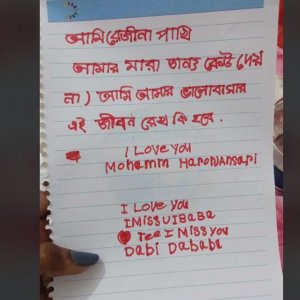 আমি রেজীনা পাখি
আমার মারা তাবর কেউ দেয়
না) আমি আমার ভালোবাসার
এই জীবন রেখ কি হবে.
I Love you
Mohamm HaronAnsari
I Love you
IMissUIBaBa
Tee I Miss you
Dabi Dababa